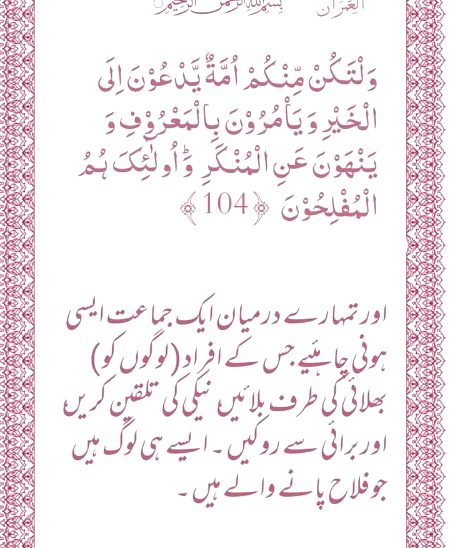 بِسْمِ اللهِ الرَّحْمٰنِ الرَّحِيْمِ
وَلْتَكُنْ مِّنْكُمْ اُمَّةٌ يَّدْعُوْنَ اِلَى
الْخَيْرِ وَيَاْمُرُوْنَ بِالْمَعْرُوْفِ وَ
يَنْهَوْنَ عَنِ الْمُنْكَرِ ؕ وَاُولٰٓئِكَ ہُمُ
الْمُفْلِحُوْنَ ﴿104﴾
اور تمہارے درمیان ایک جماعت ایسی
ہونی چاہئیے جس کے افراد (لوگوں کو)
بھلائی کی طرف بلائیں نیکی کی تلقین کریں
اور برائی سے روکیں ۔ ایسے ہی لوگ ہیں
جو فلاح پانے والے ہیں ۔